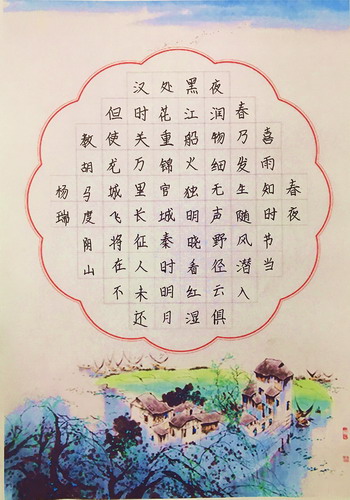 春夜
喜雨知时节当
春乃发生随风潜入
夜润物细无声野径云俱
黑江船火独明晓看红湿
处花重锦官城秦时明月
汉时关万里长征人未还
但使龙城飞将在不
教胡马度阴山
杨瑞